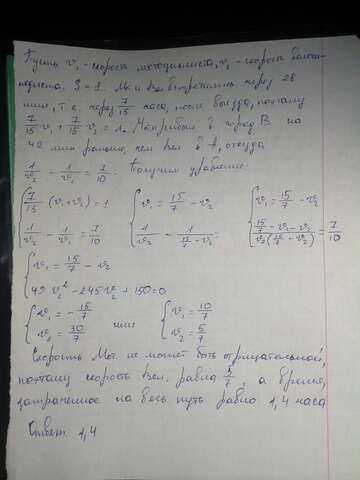 Пусть v₁ - скорость мотоциклиста, v₂ - скорость велоси-
педиста. S = 1. Мот и вел встретились через 28
мин, т.е. через 7/15 часа, после выезда, поэтому
7/15 v₁ + 7/15 v₂ = 1. Мот прибыл в город B на
42 мин раньше, чем вел в A, откуда
1/v₂ - 1/v₁ = 7/10. Получим уравнение:
{ 7/15 (v₁ + v₂) = 1 { v₁ = 15/7 - v₂ { v₁ = 15/7 - v₂
{ 1/v₂ - 1/v₁ = 7/10 { 1/v₂ - 1/(15/7 - v₂) = { (15/7 - v₂ - v₂)/(v₂(15/7 - v₂)) = 7/10
{ v₁ = 15/7 - v₂
{ 49 v₂² - 245 v₂ + 150 = 0
{ v₁ = - 15/7 или { v₁ = 10/7
{ v₂ = 30/7 { v₂ = 5/7
Скорость Мот. не может быть отрицательной,
поэтому скорость вел. равна 5/7, а время,
затраченное на весь путь равно 1,4 часа
Ответ 1,4